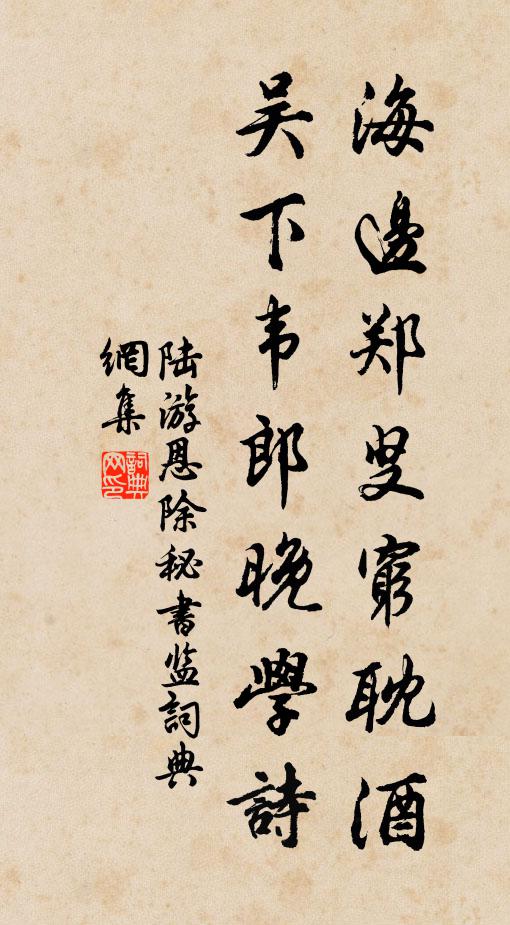 海邊郑叟窮耽酒
吴下韦郎晚學詩
陆游恩除秘書监詞典
網集
詞典網印